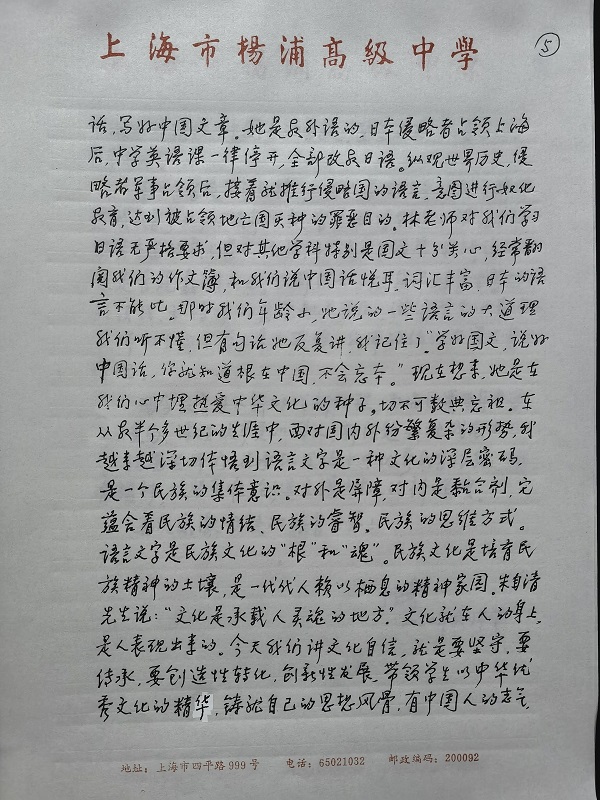 上海市楊浦高級中學
5
话,写好中国文章。她是教外语的,日本侵略者占领上海
后,中学英语课一律停开,全部改教日语。纵观世界历史,侵
略者军事占领后,接着就推行侵略国的语言,意图进行奴化
教育,达到被占领地亡国灭种的罪恶目的。林老师对我们学习
日语无严格要求,但对其他学科特别是国文十分关心,经常翻
阅我们的作文簿,和我们说中国话悦耳,词汇丰富,日本的语
言不能比。那时我们年龄小,她说的一些语言的大道理
我们听不懂,但有句话她反复讲,我记住了“学好国文,说好
中国话,你就知道根在中国,不会忘本。”现在想来,她是在
我们心中埋热爱中华文化的种子。切不可数典忘祖。在
从教半个多世纪的生涯中,面对国内外纷繁复杂的形势,我
越来越深切体悟到语言文字是一种文化的深层密码,
是一个民族的集体意识。对外是屏障,对内是黏合剂,它
蕴含着民族的情结、民族的睿智、民族的思维方式。
语言文字是民族文化的“根”和“魂”。民族文化是培育民
族精神的土壤,是一代代人赖以栖息的精神家园。朱自清
先生说:“文化是承载人灵魂的地方。”文化就在人的身上,
是人表现出来的。今天我们讲文化自信,就是要坚守,要
传承,要创造性转化,创新性发展。带领学生以中华优
秀文化的精华,铸就自己的思想风骨,有中国人的志气,
地址:上海市四平路999号 电话:65021032 邮政编码:200092